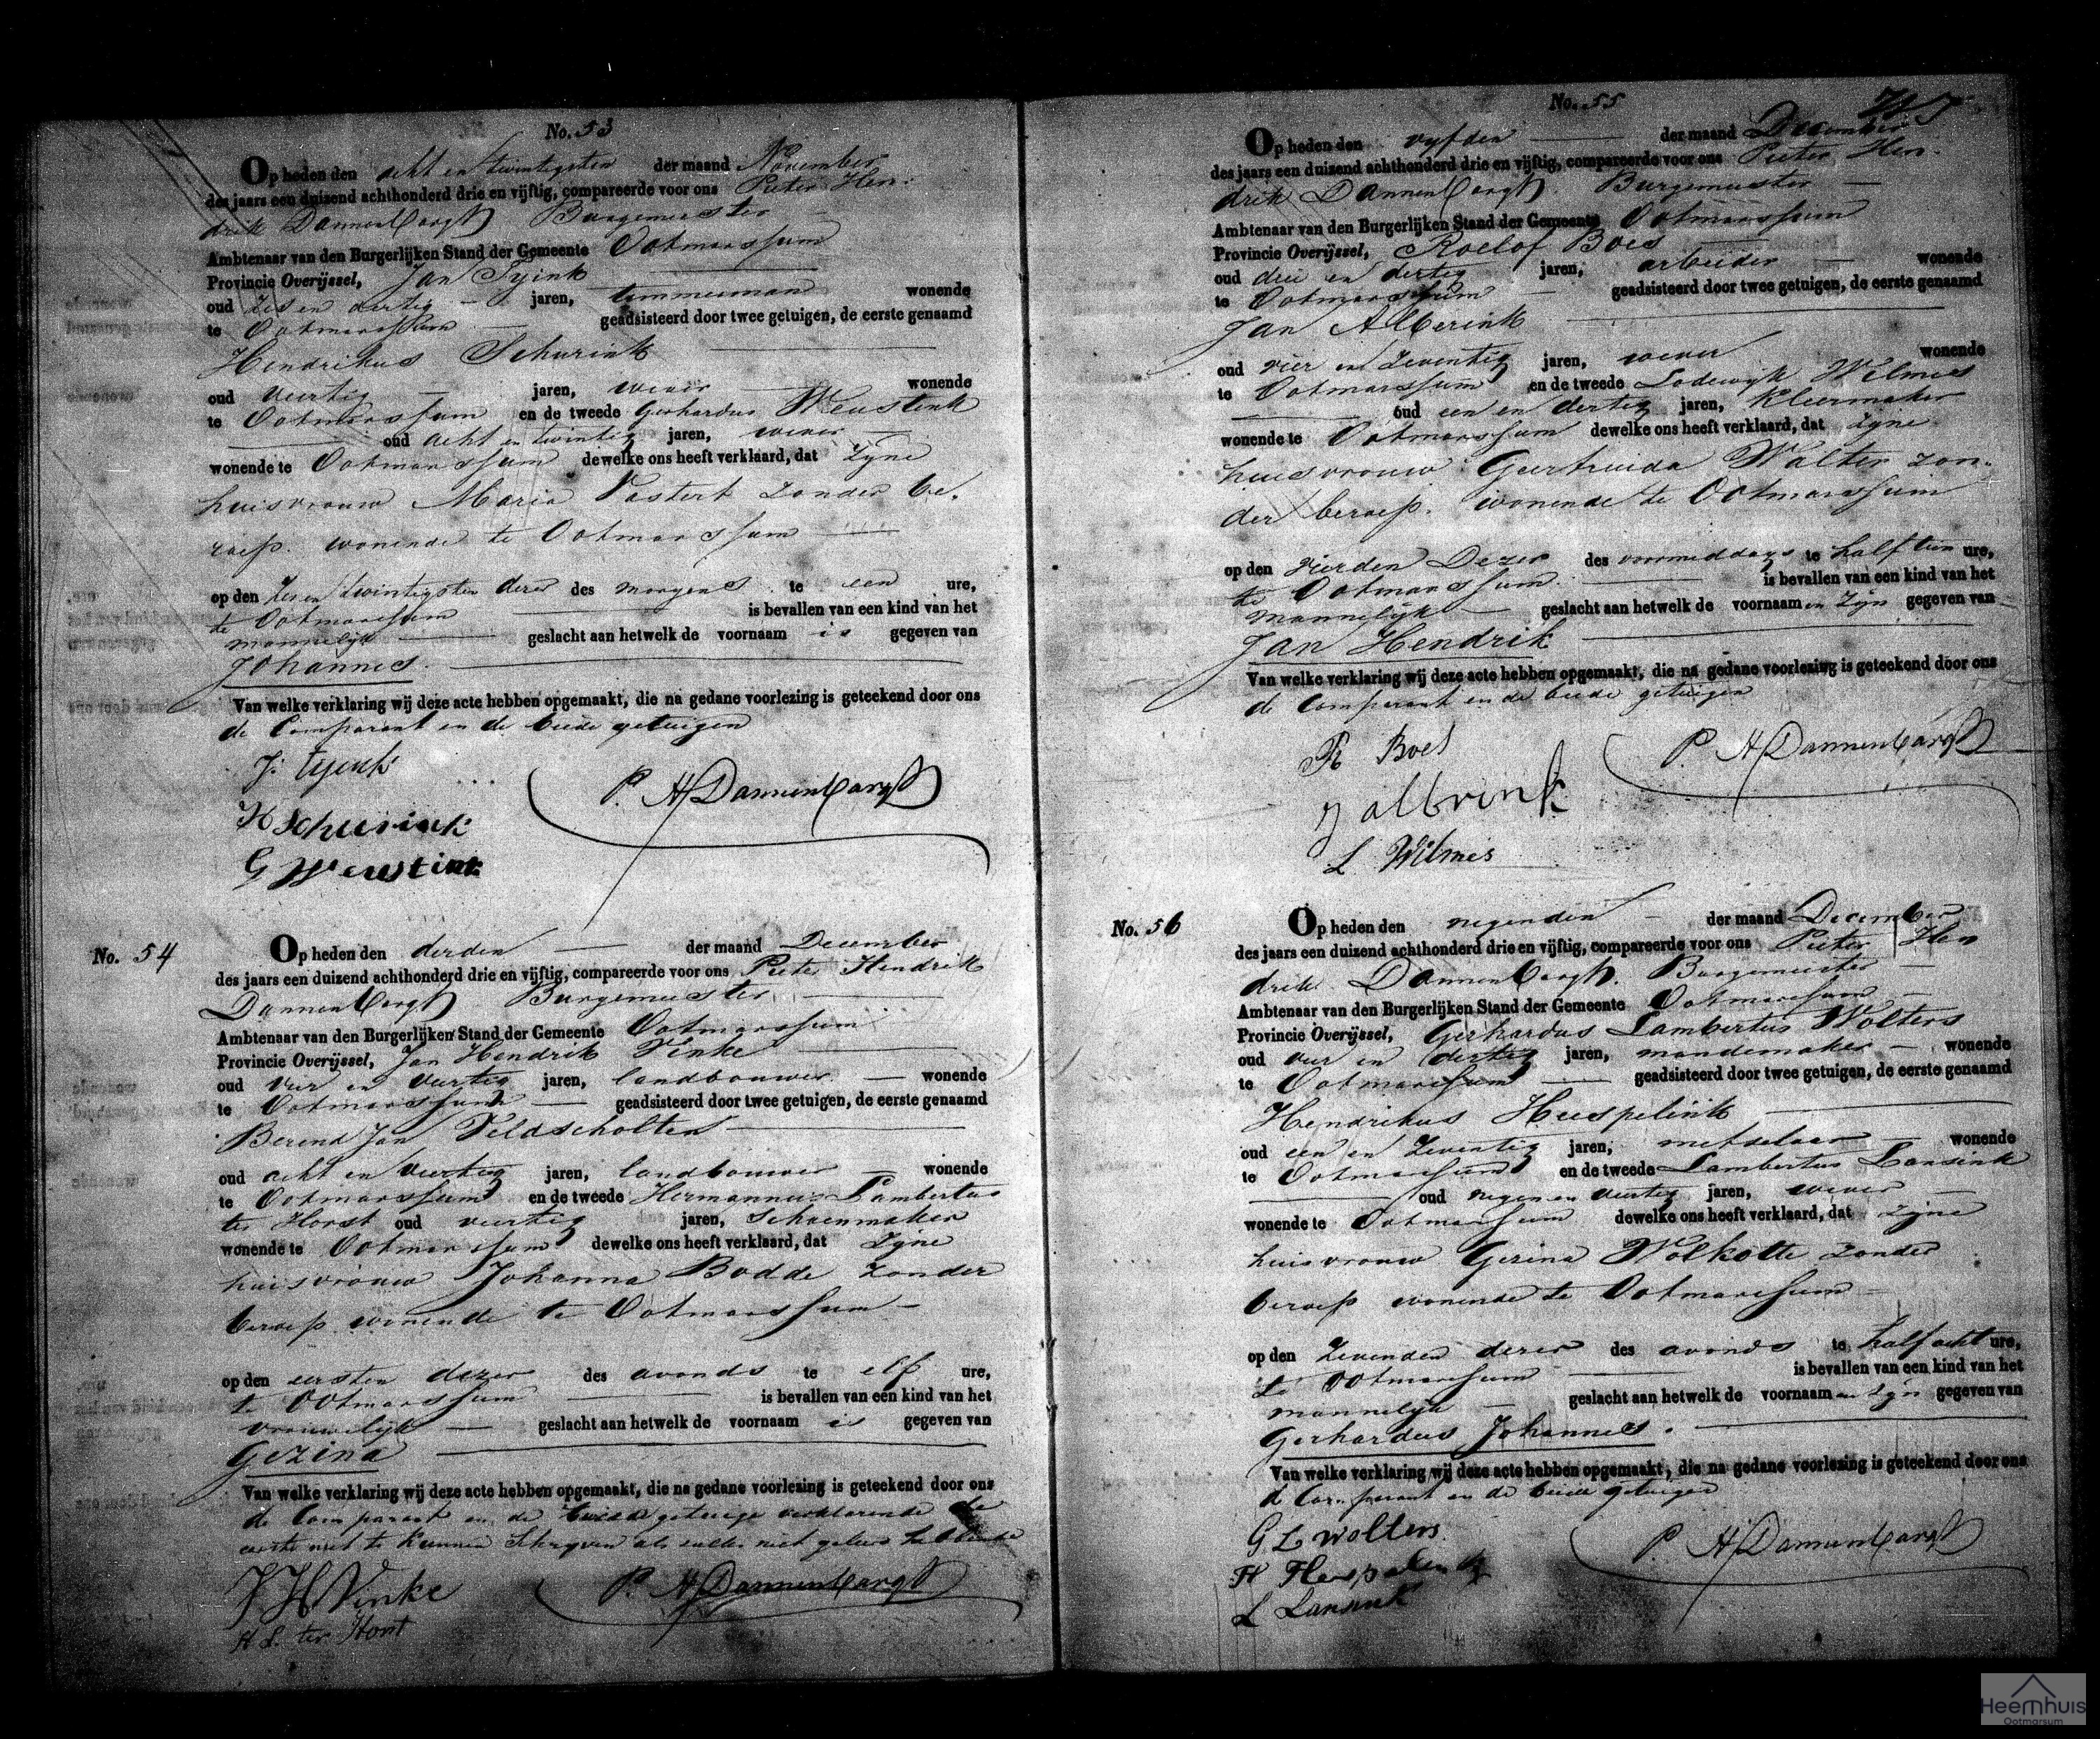 No. 53
Op heden den acht en twintigsten der maand November
des jaars een duizend achthonderd drie en vijftig, compareerde voor ons Pieter Hen-
drik Dannenbargh Burgemeester
Ambtenaar van den Burgerlijken Stand der Gemeente Ootmarssum
Provincie Overijssel, Jan Tyink
oud zes en dertig jaren, timmerman wonende
te Ootmarssum geadsisteerd door twee getuigen, de eerste genaamd
Hendrikus Schurink
oud veertig jaren, wever wonende
te Ootmarssum en de tweede Gerhardus Weustink
oud acht en twintig jaren, wever
wonende te Ootmarssum dewelke ons heeft verklaard, dat zyne
huisvrouw Maria Vostert zonder be-
roep. wonende te Ootmarssum
op den zes en twintigsten dezer des morgens te een ure,
te Ootmarssum is bevallen van een kind van het
mannelijk geslacht aan hetwelk de voornaam is gegeven van
Johannes.
Van welke verklaring wij deze acte hebben opgemaakt, die na gedane voorlezing is geteekend door ons
de Comparant en de beide getuigen
J: tyink
P. H Dannenbargh
H Schurink
G Weustink
No. 54
Op heden den derden der maand December
des jaars een duizend achthonderd drie en vijftig, compareerde voor ons Pieter Hendrik
Dannenbargh Burgemeester
Ambtenaar van den Burgerlijken Stand der Gemeente Ootmarssum
Provincie Overijssel, Jan Hendrik Vinke
oud vier en veertig jaren, landbouwer wonende
te Ootmarssum geadsisteerd door twee getuigen, de eerste genaamd
Berend Jan Veldscholten
oud acht en veertig jaren, landbouwer wonende
te Ootmarssum en de tweede Hermannus Lambertus
ter Horst oud veertig jaren, schoenmaker
wonende te Ootmarssum dewelke ons heeft verklaard, dat zyne
huisvrouw Johanna Bodde zonder
beroep wonende te Ootmarssum
op den eersten dezer des avonds te elf ure,
te Ootmarssum is bevallen van een kind van het
vrouwelijk geslacht aan hetwelk de voornaam is gegeven van
Gezina
Van welke verklaring wij deze acte hebben opgemaakt, die na gedane voorlezing is geteekend door ons
de Comparant en de tweede getuige verklarende de
eerste niet te kunnen schryven als zulks niet geleerd hebbende
J H Vinke
P. H Dannenbargh
H L. ter Horst
No. 55
Op heden den vyfden der maand December
des jaars een duizend achthonderd drie en vijftig, compareerde voor ons Pieter Hen-
drik Dannenbargh. Burgemeester
Ambtenaar van den Burgerlijken Stand der Gemeente Ootmarssum
Provincie Overijssel, Roelof Boes
oud drie en dertig jaren, arbeider wonende
te Ootmarssum geadsisteerd door twee getuigen, de eerste genaamd
Jan Alberink
oud vier en zeventig jaren, wever wonende
te Ootmarssum en de tweede Lodewyk Wilmes
oud een en dertig jaren, kleermaker
wonende te Ootmarssum dewelke ons heeft verklaard, dat zyne
huisvrouw Geertruida Walter zon-
der beroep. wonende te Ootmarssum
op den vierden dezer des voormiddags te half tien ure,
te Ootmarssum is bevallen van een kind van het
mannelijk geslacht aan hetwelk de voornaamen zyn gegeven van
Jan Hendrik
Van welke verklaring wij deze acte hebben opgemaakt, die na gedane voorlezing is geteekend door ons
de Comparant en de beide getuigen
R Boes
P. H Dannenbargh
J albrink
L Wilmes
No. 56
Op heden den negenden der maand December
des jaars een duizend achthonderd drie en vijftig, compareerde voor ons Pieter Hen
drik Dannenbargh. Burgemeester
Ambtenaar van den Burgerlijken Stand der Gemeente Ootmarssum
Provincie Overijssel, Gerhardus Lambertus Wolters
oud vier en dertig jaren, mandemaker wonende
te Ootmarssum geadsisteerd door twee getuigen, de eerste genaamd
Hendrikus Huspelink
oud een en zeventig jaren, metselaar wonende
te Ootmarssum en de tweede Lambertus Lansink
oud negen en veertig jaren, wever
wonende te Ootmarssum dewelke ons heeft verklaard, dat zyne
huisvrouw Gezina Wolkotte zonder
beroep wonende te Ootmarssum
op den zevenden dezer des avonds te half acht ure,
te Ootmarssum is bevallen van een kind van het
mannelijk geslacht aan hetwelk de voornaamen zyn gegeven van
Gerhardus Johannes.
Van welke verklaring wij deze acte hebben opgemaakt, die na gedane voorlezing is geteekend door ons
de Comparant en de beide getuigen
G L Wolters
P. H Dannenbargh
H
L Lansink
Heemhuis
Ootmarsum